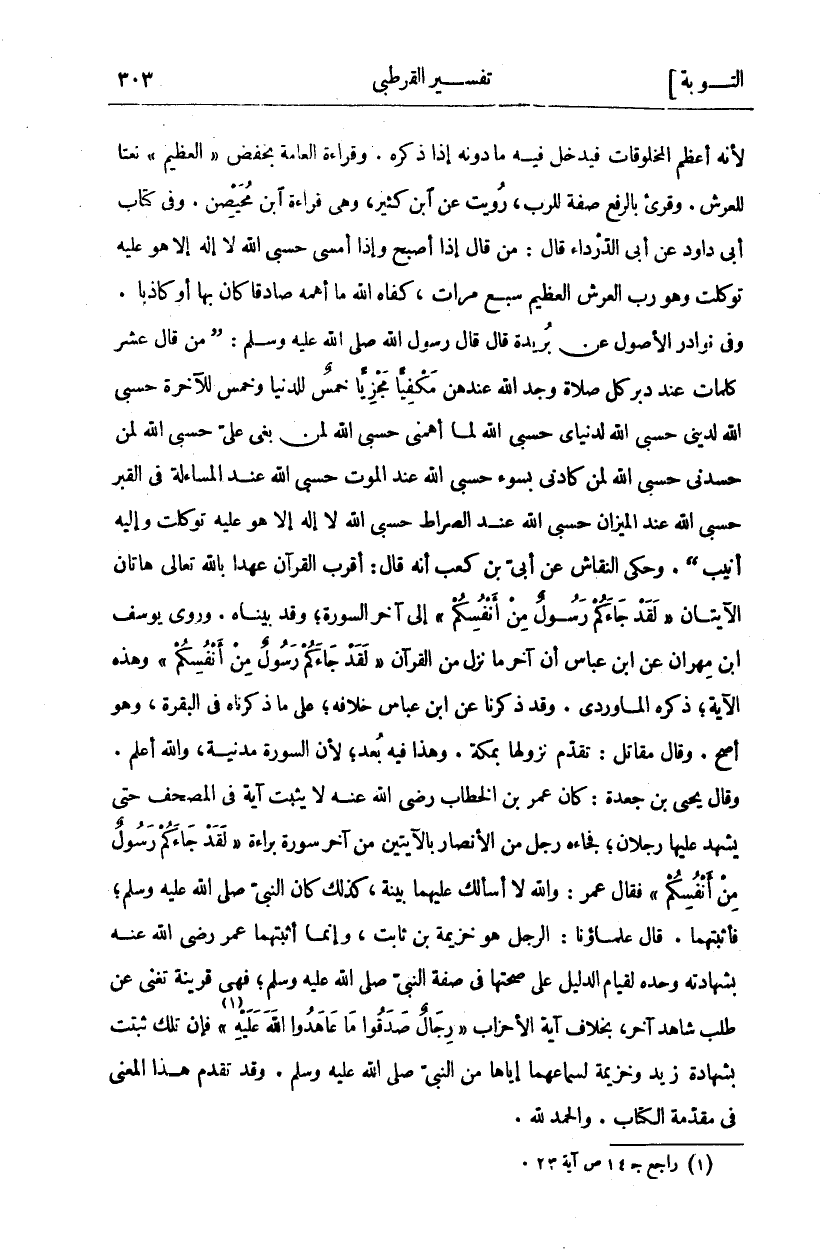 التـــوبة ] تفســـير القرطبى ٣٠٣
لأنه أعظم المخلوقات فيدخل فيه ما دونه إذا ذكره . وقراءة العامة بخفض « العظيم » نعتا
للعرش . وقرئ بالرفع صفة للرب، رُويت عن آبن كثير، وهى قراءة آبن مُحَيْصِن . وفى كتاب
أبى داود عن أبى الدّرْداء قال : من قال إذا أصبح وإذا أمسى حسبى الله لا إله إلا هو عليه
توكلت وهو رب العرش العظيم سبع مرات ، كفاه الله ما أهمه صادقا كان بها أو كاذبا .
وفى نوادر الأصول عن بُريدة قال قال رسول الله صلى الله عليه وسلم : ”من قال عشر
كلمات عند دبر كل صلاة وجد الله عندهن مَكْفِيًّا مَجْزِيًّا خمسٌ للدنيا وخمس للآخرة حسبى
الله لدينى حسبى الله لدنياى حسبى الله لما أهمنى حسبى الله لمن بغى علىّ حسبى الله لمن
حسدنى حسبى الله لمن كادنى بسوء حسبى الله عند الموت حسبى الله عند المساءلة فى القبر
حسبى الله عند الميزان حسبى الله عند الصراط حسبى الله لا إله إلا هو عليه توكلت وإليه
أنيب“ . وحكى النقاش عن أبىّ بن كعب أنه قال: أقرب القرآن عهدا بالله تعالى هاتان
الآيتان « لَقَدْ جَاءَكُمْ رَسُولٌ مِنْ أَنْفُسِكُمْ » إلى آخر السورة؛ وقد بيناه . وروى يوسف
ابن مهران عن ابن عباس أن آخر ما نزل من القرآن « لَقَدْ جَاءَكُمْ رَسُولٌ مِنْ أَنْفُسِكُمْ » وهذه
الآية؛ ذكره الماوردى . وقد ذكرنا عن ابن عباس خلافه؛ على ما ذكرناه فى البقرة ، وهو
أصح . وقال مقاتل : تقدّم نزولها بمكة . وهذا فيه بُعد؛ لأن السورة مدنية، والله أعلم .
وقال يحيى بن جعدة : كان عمر بن الخطاب رضى الله عنه لا يثبت آية فى المصحف حتى
يشهد عليها رجلان؛ فجاءه رجل من الأنصار بالآيتين من آخر سورة براءة « لَقَدْ جَاءَكُمْ رَسُولٌ
مِنْ أَنْفُسِكُمْ » فقال عمر : والله لا أسألك عليهما بينة ، كذلك كان النبىّ صلى الله عليه وسلم؛
فأثبتهما . قال علماؤنا : الرجل هو خزيمة بن ثابت ، وإنما أثبتهما عمر رضى الله عنه
بشهادته وحده لقيام الدليل على صحتها فى صفة النبىّ صلى الله عليه وسلم؛ فهى قرينة تغنى عن
طلب شاهد آخر، بخلاف آية الأحزاب « رِجَالٌ صَدَقُوا مَا عَاهَدُوا اللَّهَ عَلَيْهِ (١) » فإن تلك ثبتت
بشهادة زيد وخزيمة لسماعهما إياها من النبىّ صلى الله عليه وسلم . وقد تقدم هذا المعنى
فى مقدّمة الكتاب . والحمد لله .
(١) راجع جـ ١٤ ص آية ٢٣ .